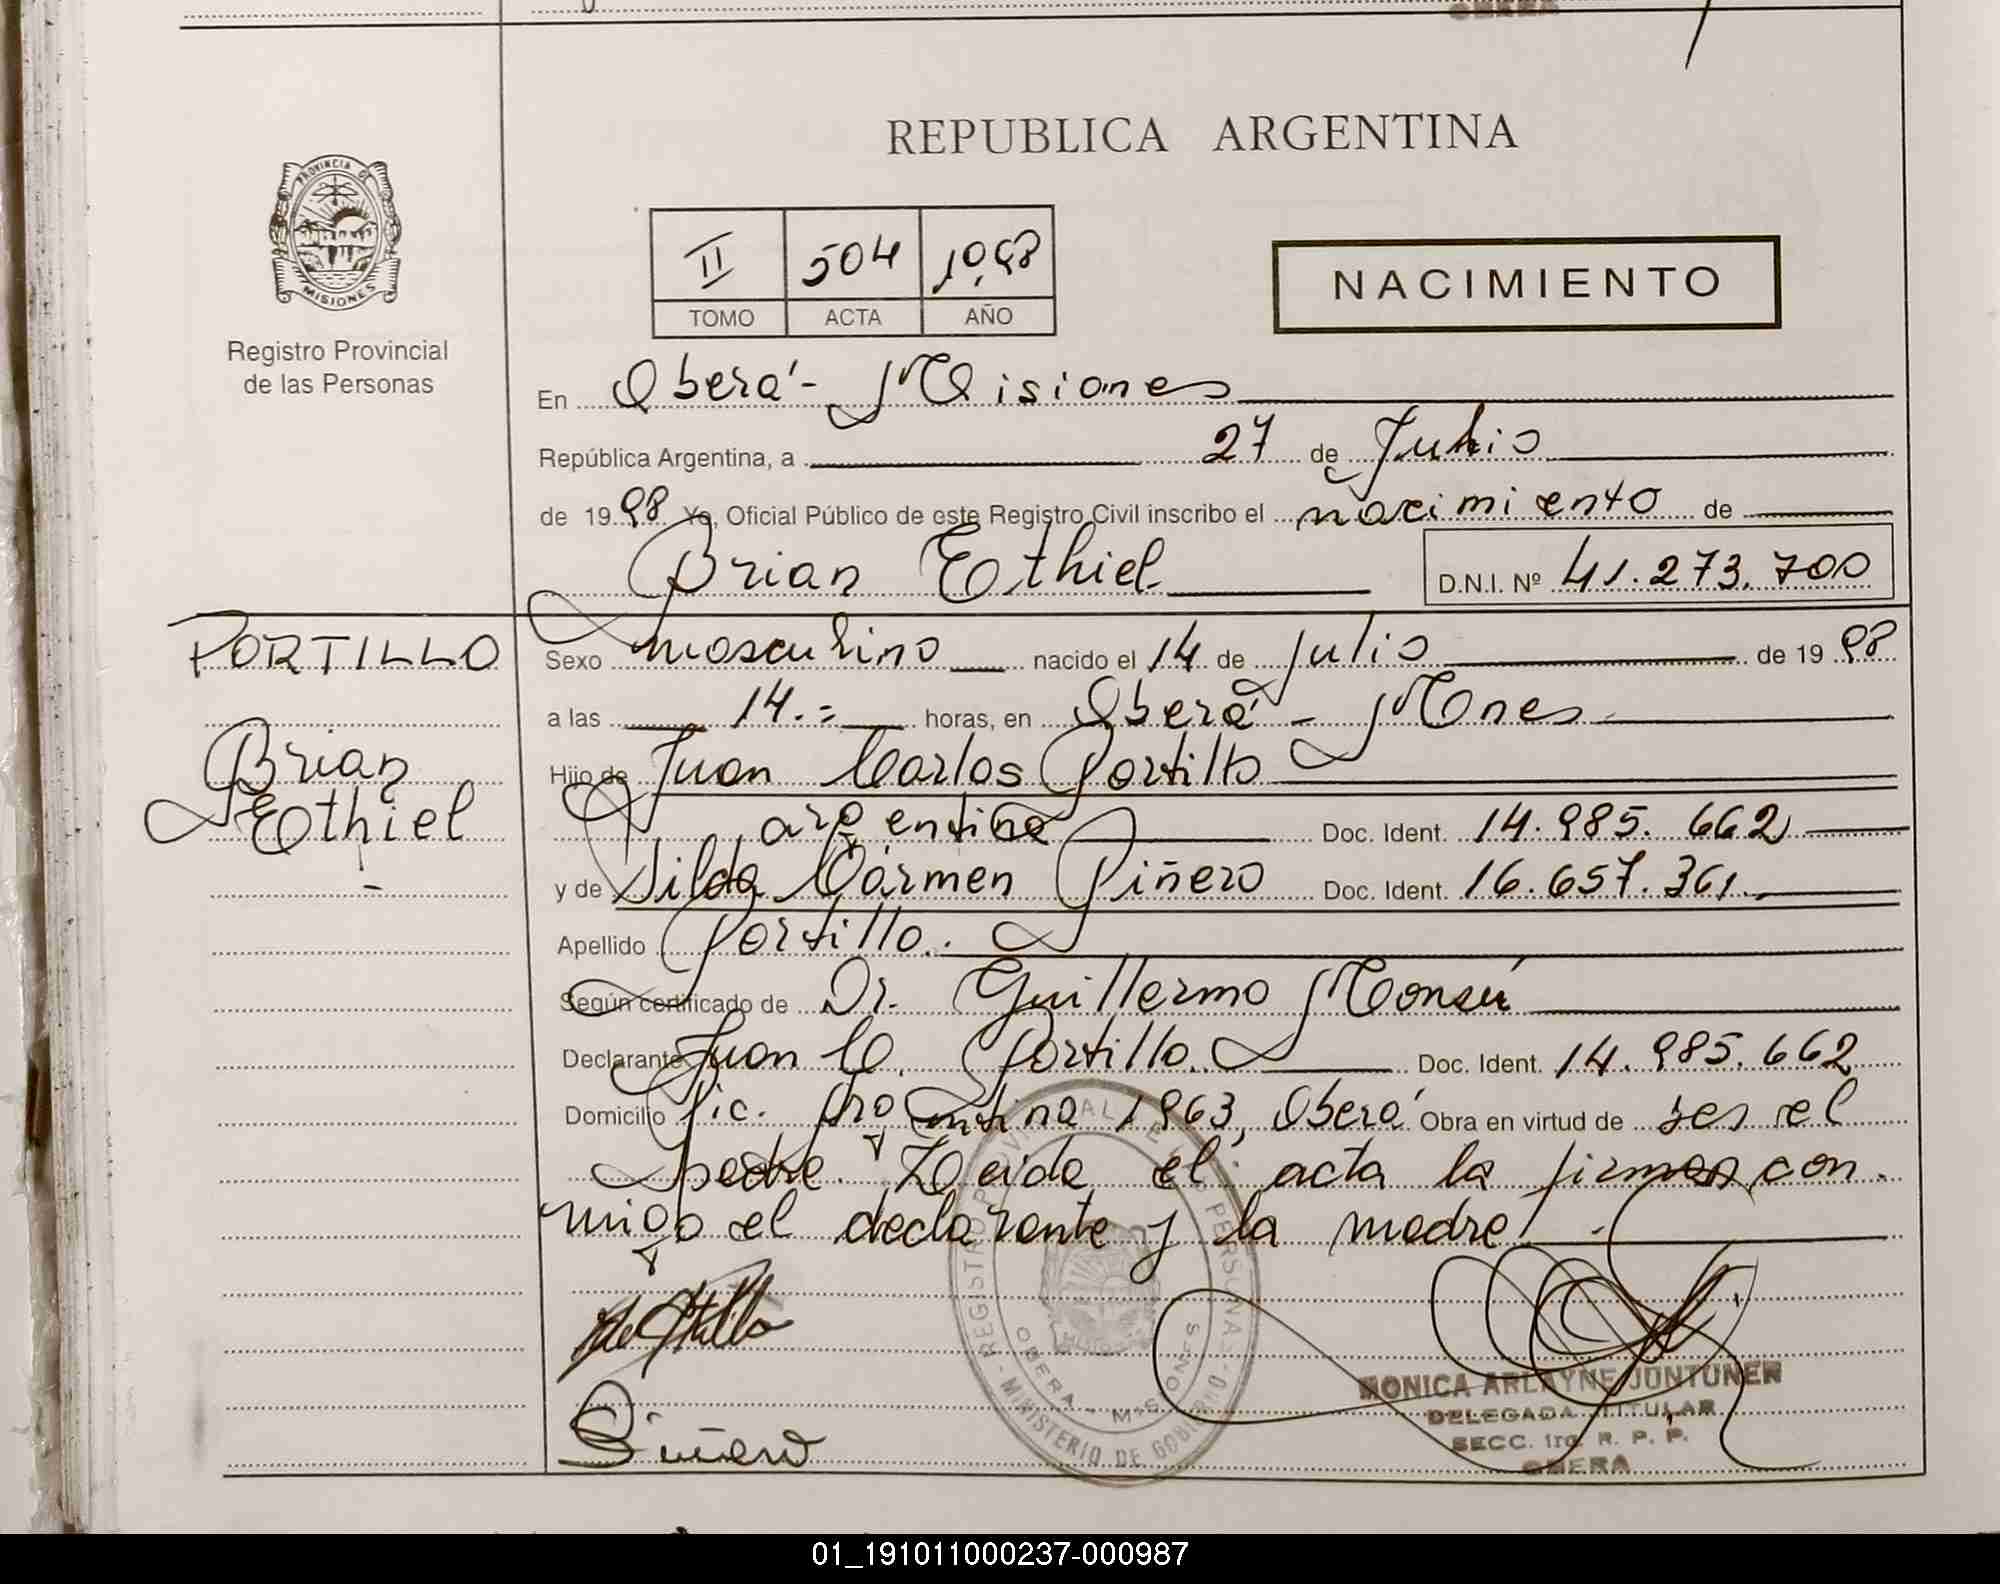 REPUBLICA ARGENTINA
PROVINCIA DE
MISIONES
Registro Provincial
de las Personas
II 504 1998
TOMO ACTA AÑO
NACIMIENTO
En Oberá - Misiones
República Argentina, a 27 de Julio
de 1998 Yo, Oficial Público de este Registro Civil inscribo el nacimiento de
Brian Ethiel D.N.I. Nº 41.273.700
PORTILLO
Brian
Ethiel
Sexo masculino nacido el 14 de Julio de 1998
a las 14.= horas, en Oberá - Mnes
Hijo de Juan Carlos Portillo
argentino Doc. Ident. 14.985.662
y de Silda Carmen Piñero Doc. Ident. 16.657.361.
Apellido Portillo.
Según certificado de Dr. Guillermo Monsú
Declarante Juan C. Portillo. Doc. Ident. 14.985.662
Domicilio Pic. Argentina 1963, Oberá Obra en virtud de ser el
padre. Leida el acta la firman con
migo el declarante y la madre! -
Piñero
REGISTRO PROVINCIAL DE LAS PERSONAS
MINISTERIO DE GOBIERNO
OBERA - MISIONES
MONICA ARLAYNE JUNTUNEN
DELEGADA TITULAR
SECC. 1ra. R. P. P.
OBERA
01_191011000237-000987